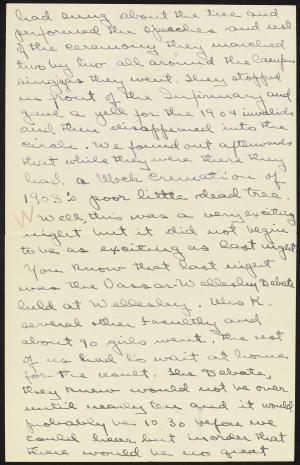 had sung about the tree and
performed the speeches and rest
of the ceremony they marched
two by two all around the Campus
singing as they went. They stopped
in front of the Infirmary and
gave a yell for the 1904 invalids
and then disappeared into the
circle. We found out afterwards
that while they were there they
had a Mock Cremation of
1903's poor little dead tree.
Well, this was a very exciting
night but it did not begin
to be as exciting as last night.
You know that last night
was the Vassar Wellesley Debate
held at Wellesley. Miss K.
several other Faculty and
about 90 girls went. The rest
of us had to wait at home
for the result. The Debate,
they knew would not be over
until nearly ten and it would
probably be 10.30 before we
could hear but in order that
there would be no great